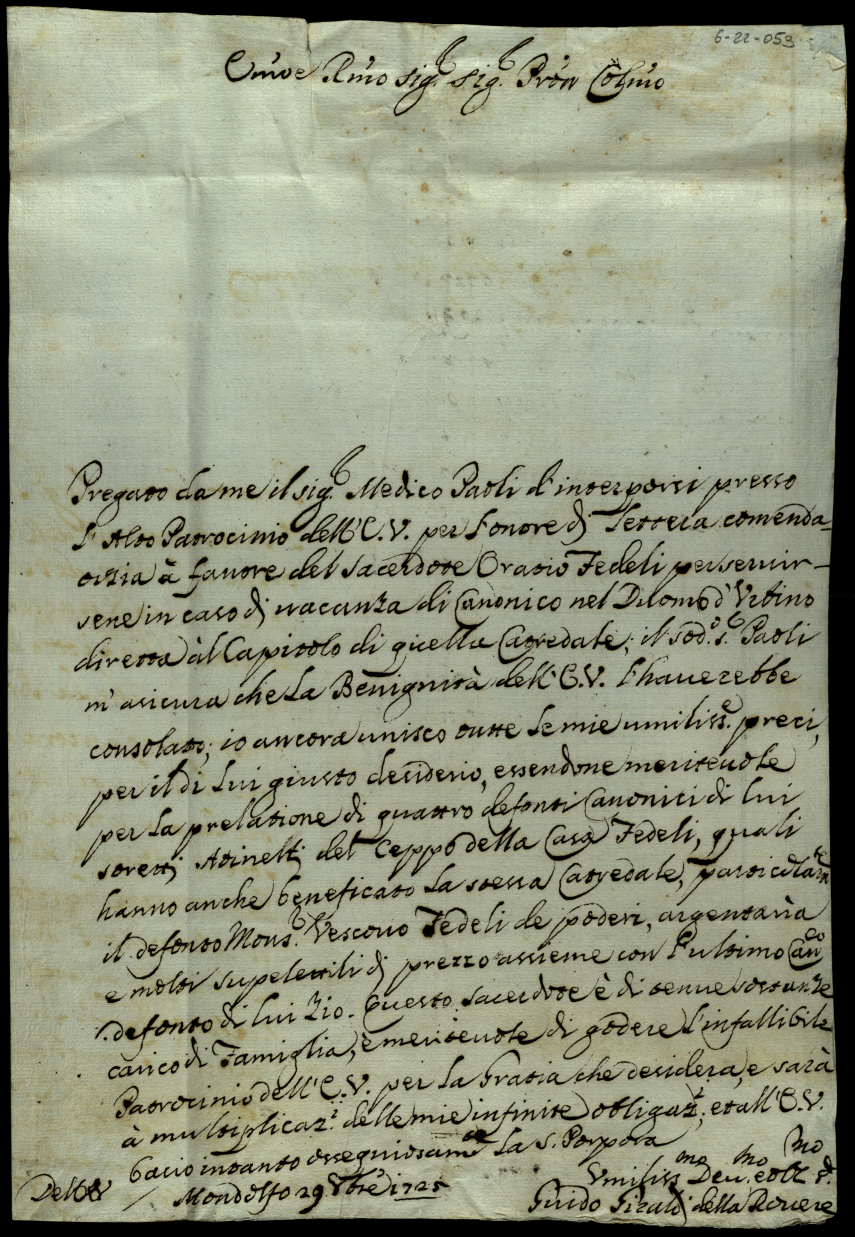 6-22-053
Em̃o e Rm̃o Sig.r Sig.r Prõn Cõlm̃o
Pregato da me il Sig.r Medico Paoli d'interporsi presso
l'Alto Patrocinio dell'E.V. per l'onore di lettera comenda=
tizia à favore del Sacerdote Oratio Fedeli per servir-
sene in caso di vacanza di Canonico nel Duomo d'Urbino
diretta al Capitolo di quella Catredale; il sod.o S.r Paoli
m'asicura che la Benignità dell'E.V. l'haverebbe
consolato; io ancora unisco tutte le mie umiliss.e preci,
per il di lui giusto desiderio, essendone meritevole
per la prelatione di quattro defonti Canonici di lui
stretti Atinelli del Ceppo della Casa Fedeli, quali
hanno anche beneficato la stessa Catredale, particolarm.te
il defonto Mons.r Vescovo Fedeli de poderi, argentaria
e molti supelettili di prezzo assieme con l'ultimo Can.co
defonto di lui Zio. Questo Sacerdote è di tenue sostanze
carico di Famiglia, e meritevole di godere l'infallibile
Patrocinio dell'E.V. per la Gratia che desidera, e sarà
à multiplicaz.e delle mie infinite obligaz.i, et all'E.V.
bacio intanto ossequiosam.te la S. Porpora
Dell'E.V.
Mondolfo 29 Xbre 1725
Umiliss.mo Dev.mo e Obl.mo S.re
Guido Giraldi della Rovere